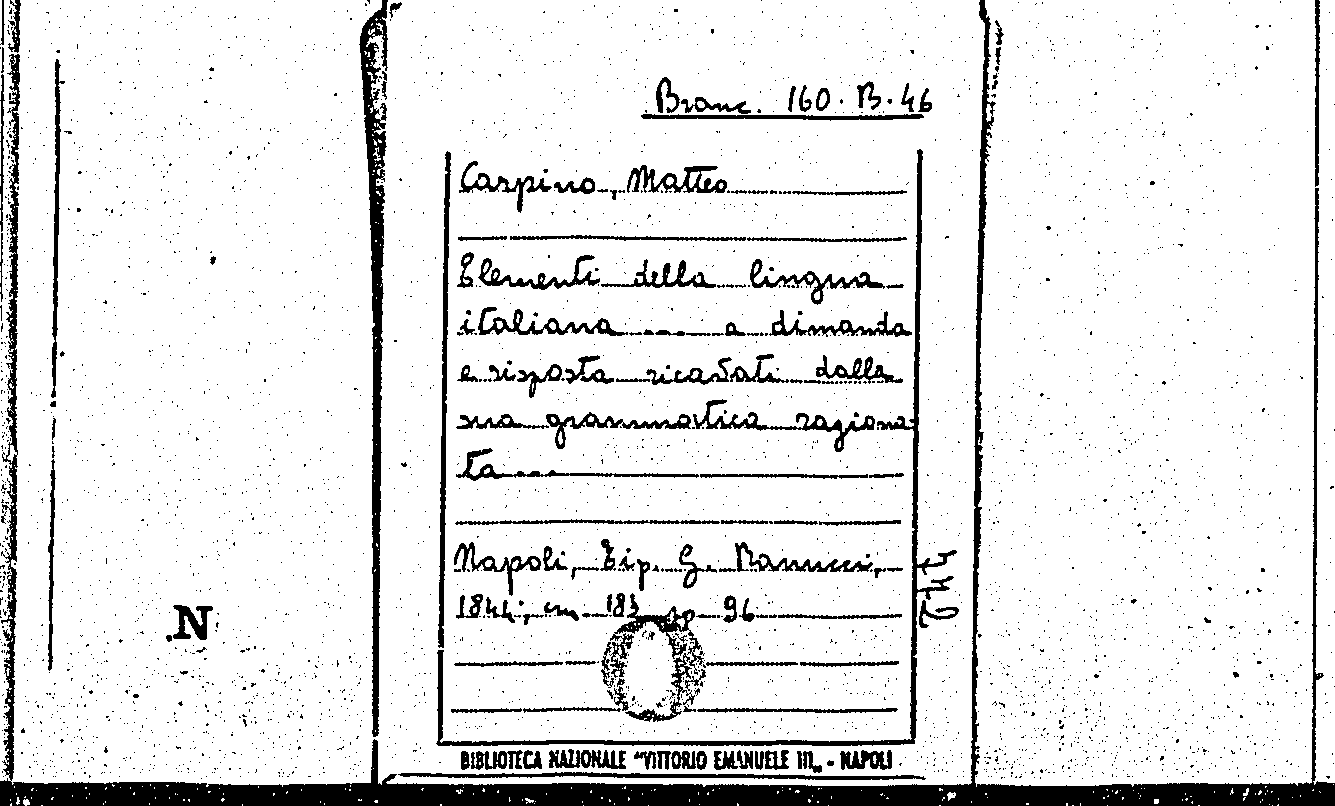 Branc. 160. B. 46
Carpino, Matteo
Elementi della lingua
italiana .... a dimanda
e risposta ricavati dalla
sua grammatica ragiona-
ta ...
Napoli, Tip. G. Ranucci,
1844; cm. 18 pp 96
N
BIBLIOTECA NAZIONALE "VITTORIO EMANUELE III„ - NAPOLI